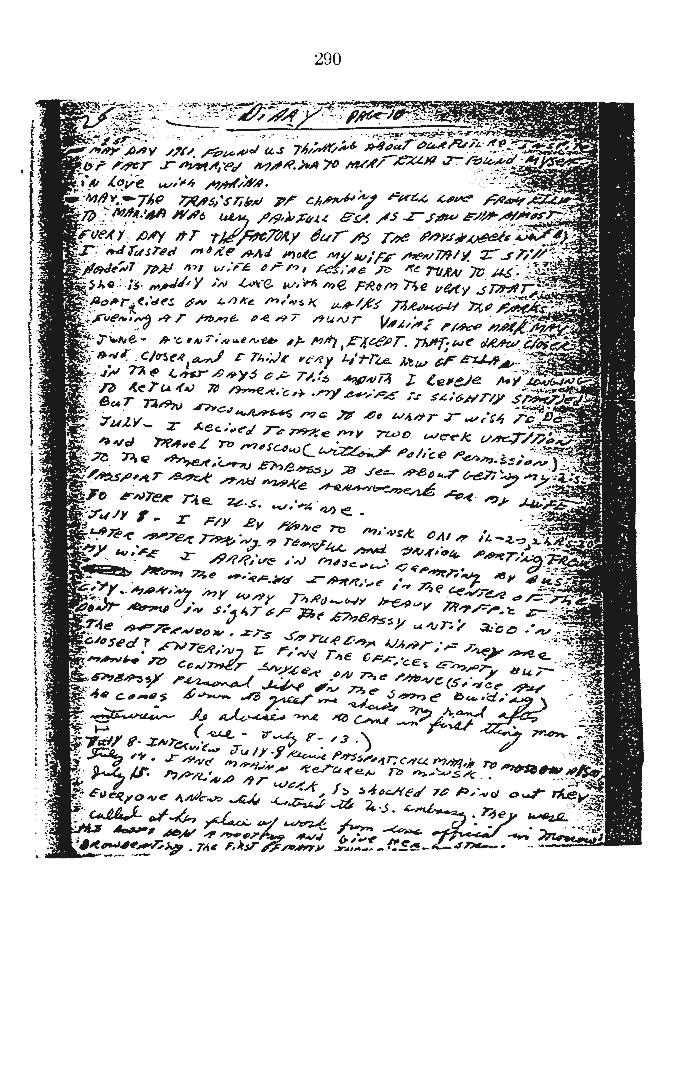 290
DIARY PAGE 10
MAY DAY 1961. FOUND US THINKING ABOUT OUR FUTURE. INSPITE
OF FACT I MARRIED MARINA TO HURT ELLA I FOUND MYSELF
IN LOVE WITH MARINA.
MAY.- THE TRASISTION OF CHANGING FULL LOVE FROM ELLA
TO MARINA WAS very PAINFULL ESP. AS I SAW ELLA ALMOST
EVERY DAY AT THE FACTORY BUT AS THE DAYS & WEEKS WENT BY
I ADJUSTED MORE AND MORE MY WIFE MENTALY. I STILL
TOLD MY WIFE OF MY DESIRE TO RETURN TO US.
She is maddly in Love with me FROM THE VERY START
BOAT, RIDES ON LAKE MINSK WALKS THROUGH THE PARKS
EVENING AT HOME OR AT AUNT VALIA'S PLACE MARK MAY
JUNE- A CONTINUENCE OF MAY, EXCEPT. THAT; WE DRAW CLOSER
AND CLOSER, and I THINK VERY LITTLE NOW OF ELLA
IN THE LAST DAYS OF THIS MONTH I REVELE MY LONGING
TO RETURN TO AMERICA. MY WIFE IS SLIGHTLY STARTLED
BUT THAN ENCOURAGES ME TO DO WHAT I WISH TO DO
JULY- I DECIVED TO TAKE MY TWO WEEK VACTITION
AND TRAVEL TO MOSCOW (without POLICE PERMISSION)
TO THE AMERICAN EMBASSY TO SEE ABOUT GETING MY U.S.
PASSPORT BACK AND MAKE ARRANGEMENTS FOR MY WIFE
TO ENTER THE U.S. WITH ME.
JULY 8- I FLY BY PLANE TO MINSK ON A IL-20,
LATER AFTER TAKING A TEARFULL AND ANXIOU PARTING FROM
MY WIFE I ARRIVE IN MOSCOW DEPARTING BY BUS
FROM THE AIRFIELD I ARRIVE IN THE CENTER OF THE
CITY. MAKING MY WAY THROUGH HEAVY TRAFFIC I
DON'T COME IN SIGHT OF THE EMBASSY UNTIL 3:00 IN
THE AFTERNOON. ITS SATURDAY WHAT IF THEY ARE
CLOSED? ENTERING I FIND THE OFFICES EMPTY BUT
MANGE TO CONTACT SNYDER ON THE PHONE (SINCE ALL
EMBASSY PERSONAL LIVE IN THE SAME BUIDING)
he comes down to greet me shake my hand after
interview he advises me to come in first thing mon.
(see - July 8-13.)
July 8- INTERVIEW JULY-9 PASSPORT; CALL MARIN TO MOSCOW ALSO.
July 14. I AND MARINA RETUREN TO MINSK.
July 15. MARINA AT WORK, IS SHOCKED TO FIND OUT THEY
EVERYONE KNOWS she entered the U.S. embassy. They were
called at her place of work from some official in Moscow
THE BOSSES HOLD A MEETING AND GIVE HER A STRONG
BROWBEATING. THE FIRST OF MANY